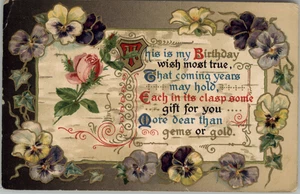 This is my Birthday
wish most true.
That coming years
may hold,
Each in its clasp some
gift for you
More dear than
gems or gold.